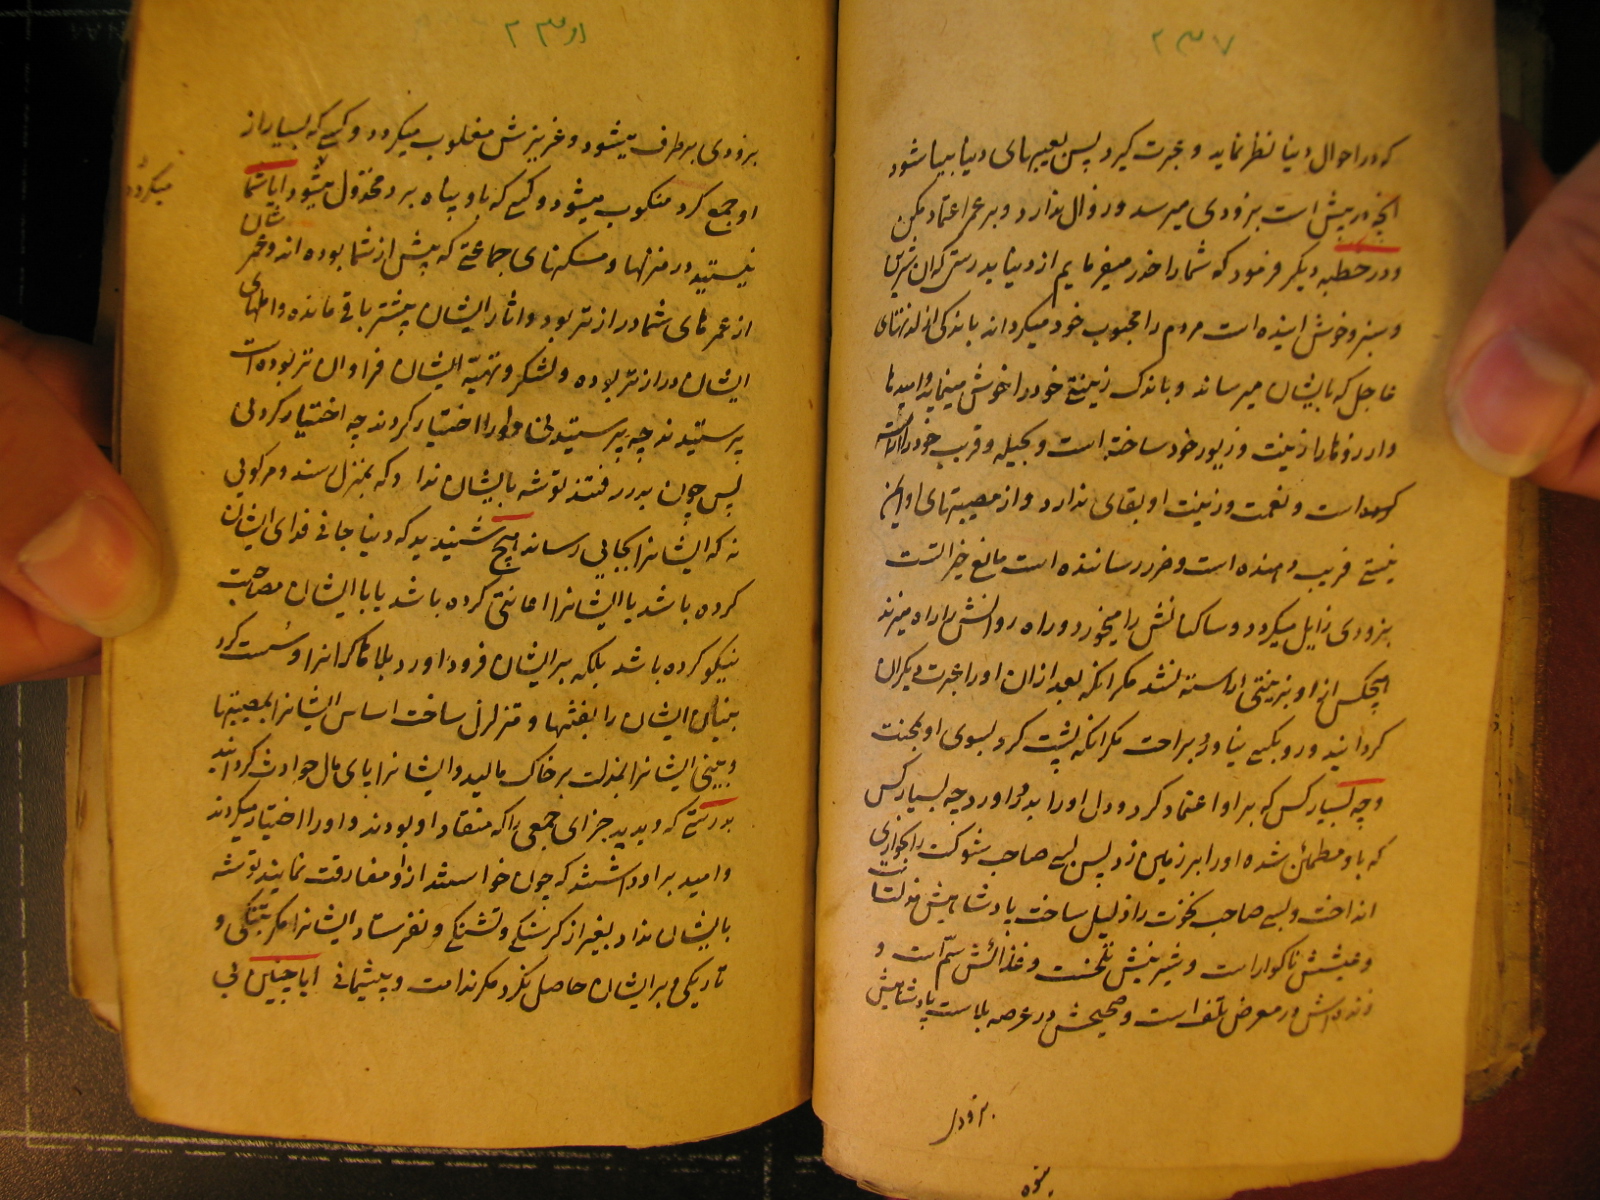 ۲۳۷
که در احوال دنیا نظر نماید و عبرت گیرد پس بعیبهای دنیا بینا شود
آنچه در پیش است بزودی میرسد و زوال ندارد و بر عمر اعتماد مکن
و در خطبه دیگر فرمود که شما را حذر میفرمایم از دنیا بدرستی که آن شیرین
و سبز و خوش آینده است مردم را محبوب خود میگرداند باندکی از لذتهای
عاجل که بایشان میرساند و باندک زینتی خود را خوش مینماید و امیدها
و آرزوها را زینت و زیور خود ساخته است و بحیله و فریب خود را آراسته
کرده است و نعمت و زینت او بقای ندارد و از مصیبتهای او ایمن
نیستی فریب دهنده است و ضرر رساننده است مانع خیر است
بزودی زایل میگردد و ساکنانش را میخورد و راه روانش را راه میزند
هیچکس از او بزینتی آراسته نشد مگر آنکه بعد از آن او را عبرت دیگران
گردانید و رو بکسی نیاورد براحت مگر آنکه پشت کرد بسوی او بمحنت
و چه بسیار کس که بر او اعتماد کرد و دل او را بدرد آورد و چه بسیار کس
که باو مطمئن شده او را بر زمین زد پس بسی صاحب شوکت را بخواری
انداخت و بسی صاحب نخوت را ذلیل ساخت پادشاهیش مذلت است
و عیشش ناگوار است و شیرینیش تلخست و غذائش سمّ است و
زنده‌اش در معرض تلف است و صحیحش در عرصه بلاست پادشاهیش
بزودی
۲۳۶
بزودی برطرف میشود و عزیزش مغلوب میگردد و کسی که بسیار از
او جمع کرد منکوب میشود و کسی که باو پناه برد مخذول میشود آیا شما
میگردد
نیستید در منزلها و مسکنهای جماعتی که پیش از شما بوده‌اند و عمر شان
از عمرهای شما درازتر بود و آثار ایشان بیشتر باقی مانده و املهای
ایشان درازتر بوده و لشکر و تهیّه ایشان فراوان تر بوده است
پرستیدند چه پرستیدنی و او را اختیار کردند چه اختیار کردنی
پس چون بدر رفتند توشه بایشان نداد که بمنزل رسند و مرکوبی
نه که ایشانرا بجایی رساند هیچ شنیدید که دنیا جانی فدای ایشان
کرده باشد یا ایشانرا اعانتی کرده باشد یا با ایشان مصاحبت
نیکو کرده باشد بلکه بر ایشان فرود آورد بلاها که آنرا و سست کرد
بنیان ایشان را بفتنها و متزلزل ساخت اساس ایشانرا بمصیبتها
و بینی ایشانرا بمذلت بر خاک مالید و ایشانرا پای مال حوادث گردانید
بدرستی که دیدید جزای جمعی را که منقاد او بودند و او را اختیار میکردند
و امید بر او داشتند که چون خواستند از او مفارقت نمایند توشه
بایشان نداد بغیر از گرسنگی و تشنگی و نفرستاد ایشانرا مگر بتنگی و
تاریکی و بر ایشان حاصل نکرد مگر ندامت و پشیمانی آیا چنین بی